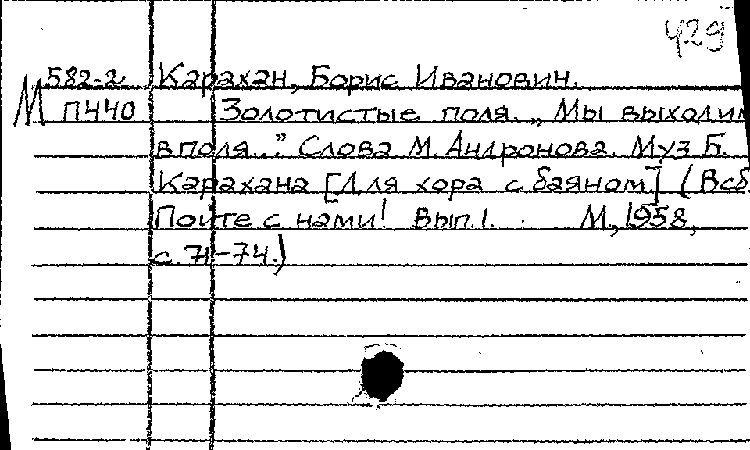 429
582-2 Карахан, Борис Иванович.
М П440 Золотистые поля. „Мы выходим
в поля..." Слова М. Андронова. Муз Б.
Карахана [Для хора с баяном] (В сб.
Пойте с нами! Вып. 1. М., 1958,
с. 71-74.)